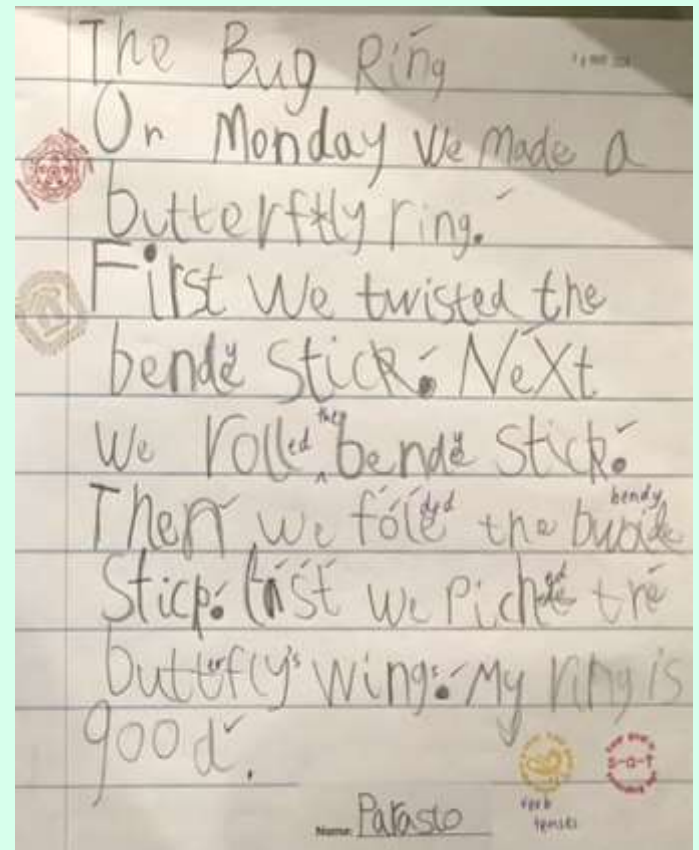 The Bug Ring
On Monday we made a
butterfly ring.
First we twisted the
bendy stick. Next
we rolled the bendy stick.
Then we folded the bendy
stick. Last we piched the
butterfly's wings. My ring is
good.
Name: Parasto
S-O-T
verb
tenses